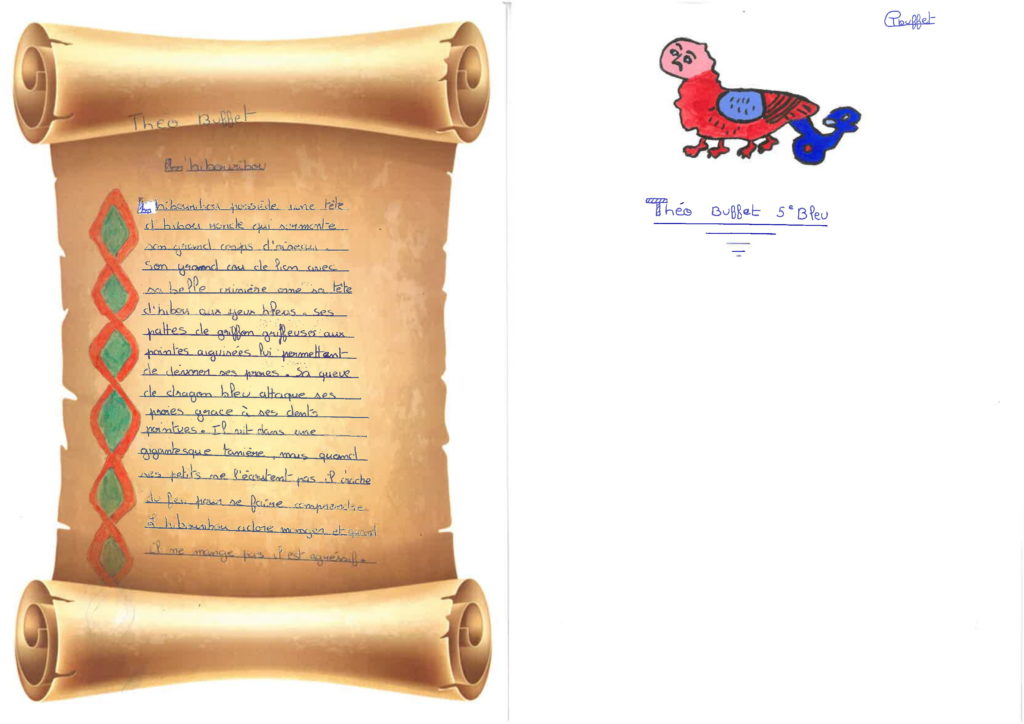 Théo Buffet
L'hibouribou
L'hibouribou possède une tête
d'hibou ronde qui surmonte
son grand corps d'oiseau.
Son grand cou de lion avec
sa belle crinière orne sa tête
d'hibou aux yeux bleus. Ses
pattes de griffon griffeuses aux
pointes aiguisées lui permettent
de dévorer ses proies. Sa queue
de dragon bleu attaque ses
proies grace à ses dents
pointues. Il vit dans une
gigantesque tanière, mais quand
ses petits ne l'écoutent pas il crache
du feu pour se faire comprendre.
L'hibouribou adore manger et quand
il ne mange pas il est agressif.
Tbuffet
Théo Buffet 5e Bleu